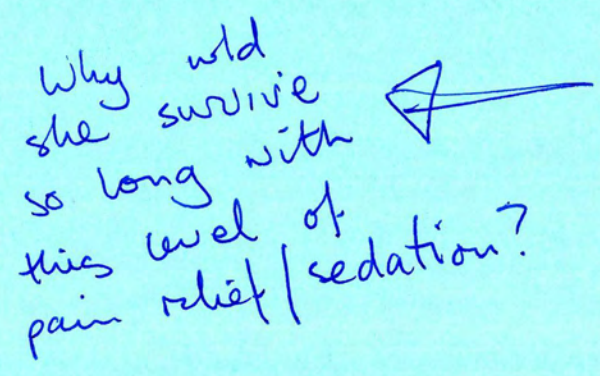 Why wld
she survive
so long with
this level of
pain relief/sedation?